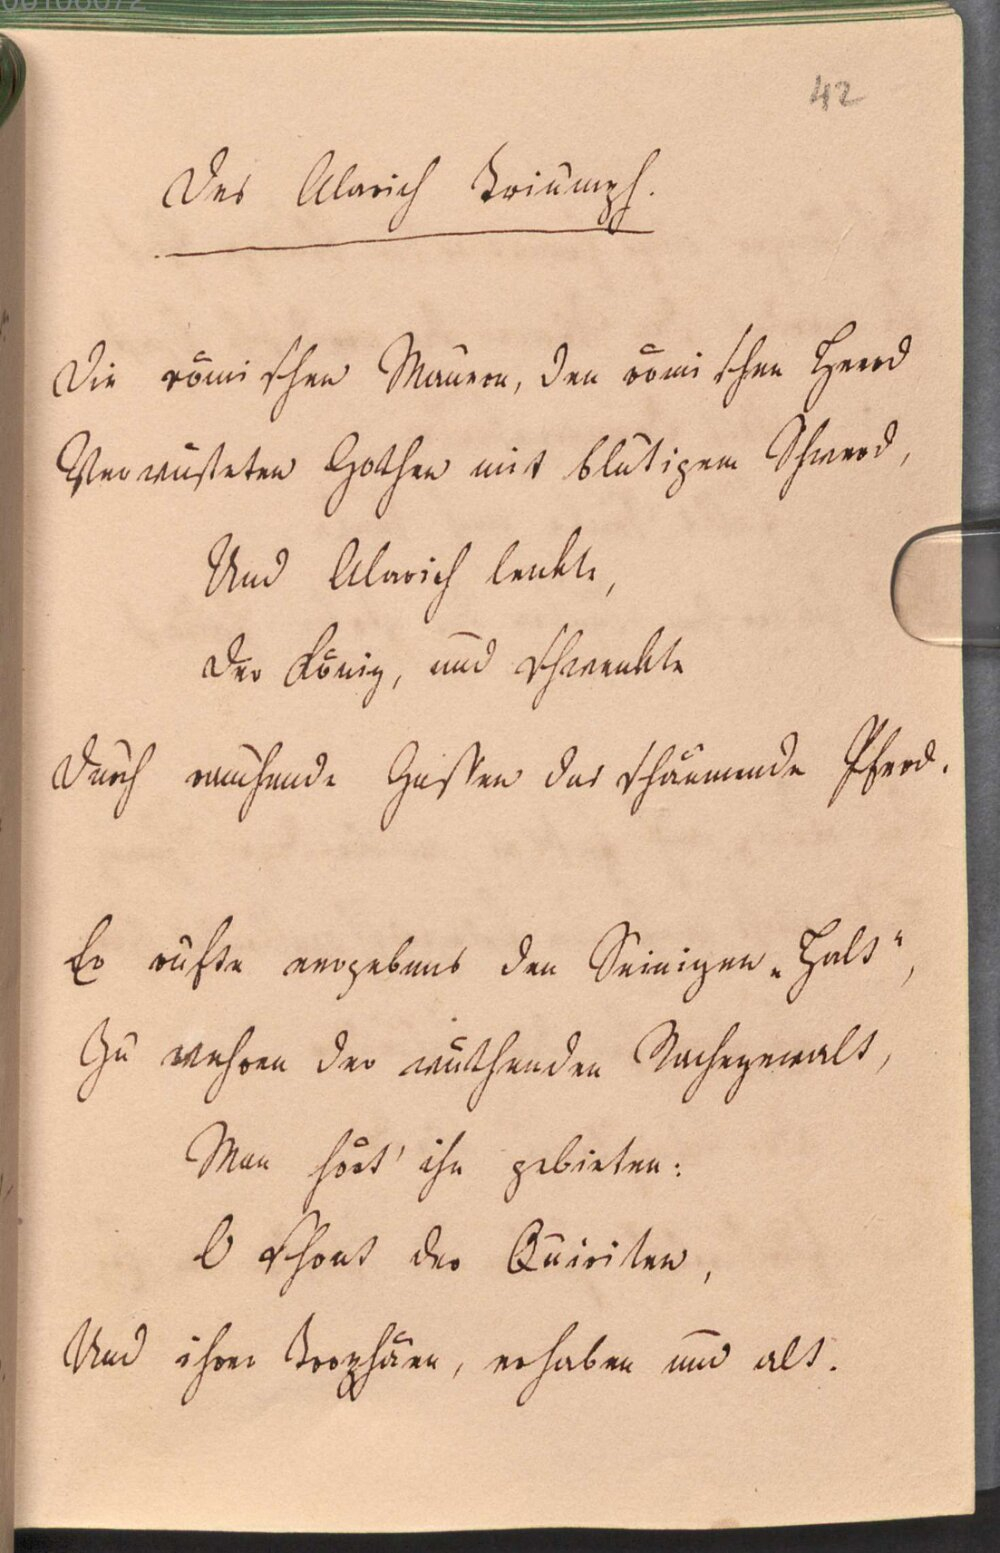 42
Des Alarich Triumph.
Die römischen Mauern, den römischen Heerd
Verwüsteten Gothen mit blutigem Schwerd,
Und Alarich lenkte,
Der König, und schwenkte
Durch rauchende Gassen das schäumende Pferd.
Er rufte vergebens den Seinigen „Halt“,
Zu wehren der wüthenden Rachegewalt,
Man hört' ihn gebieten:
O schont der Quiriten,
Und ihrer Trophäen, erhaben und alt.